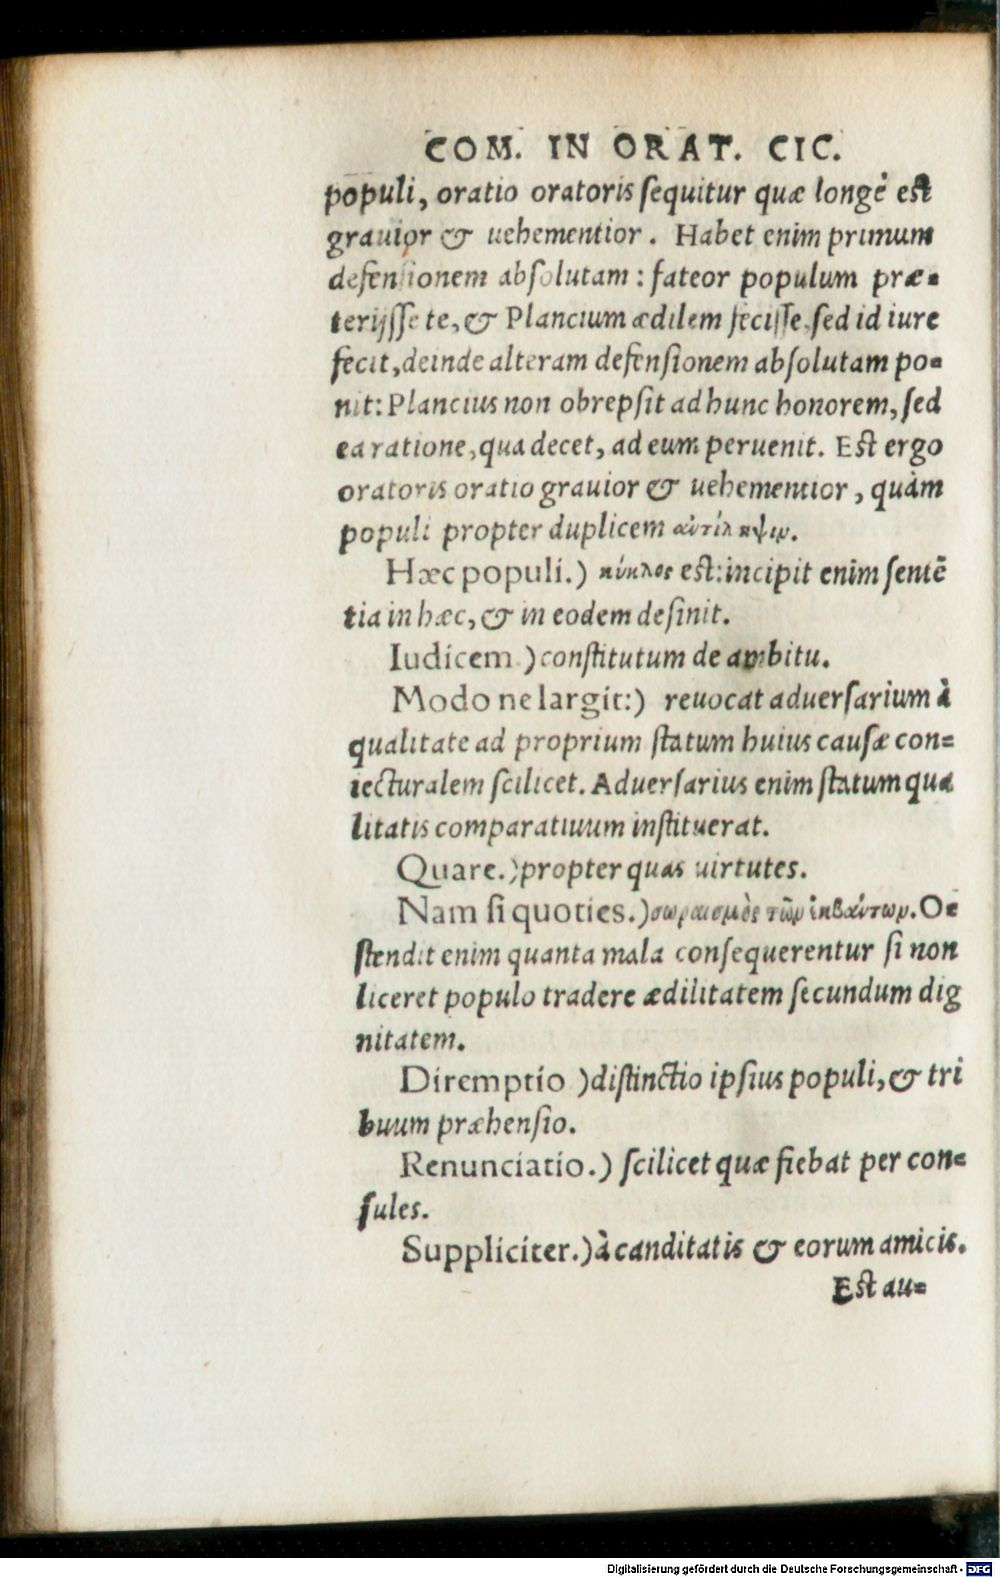 COM. IN ORAT. CIC.
populi, oratio oratoris ſequitur quæ longè eſt
grauior & uehementior. Habet enim primum
defenſionem abſolutam: fateor populum præ-
terijſſe te, & Plancium ædilem feciſſe, ſed id iure
fecit, deinde alteram defenſionem abſolutam po-
nit: Plancius non obrepſit ad hunc honorem, ſed
ea ratione, qua decet, ad eum peruenit. Eſt ergo
oratoris oratio grauior & uehementior, quàm
populi propter duplicem ἀντίληψιν.
Hæc populi.) κύκλος eſt: incipit enim ſentē
tia in hæc, & in eodem deſinit.
Iudicem.) conſtitutum de ambitu.
Modo ne largit:) reuocat aduerſarium à
qualitate ad proprium ſtatum huius cauſæ con-
iecturalem ſcilicet. Aduerſarius enim ſtatum qua
litatis comparatiuum inſtituerat.
Quare.) propter quas uirtutes.
Nam ſi quoties.) τῶν ἐκβάντων. O-
ſtendit enim quanta mala conſequerentur ſi non
liceret populo tradere ædilitatem ſecundum dig
nitatem.
Diremptio) diſtinctio ipſius populi, & tri
buum præhenſio.
Renunciatio.) ſcilicet quæ fiebat per con-
ſules.
Suppliciter.) à canditatis & eorum amicis.
Eſt au-
Digitalisierung gefördert durch die Deutsche Forschungsgemeinschaft - DFG